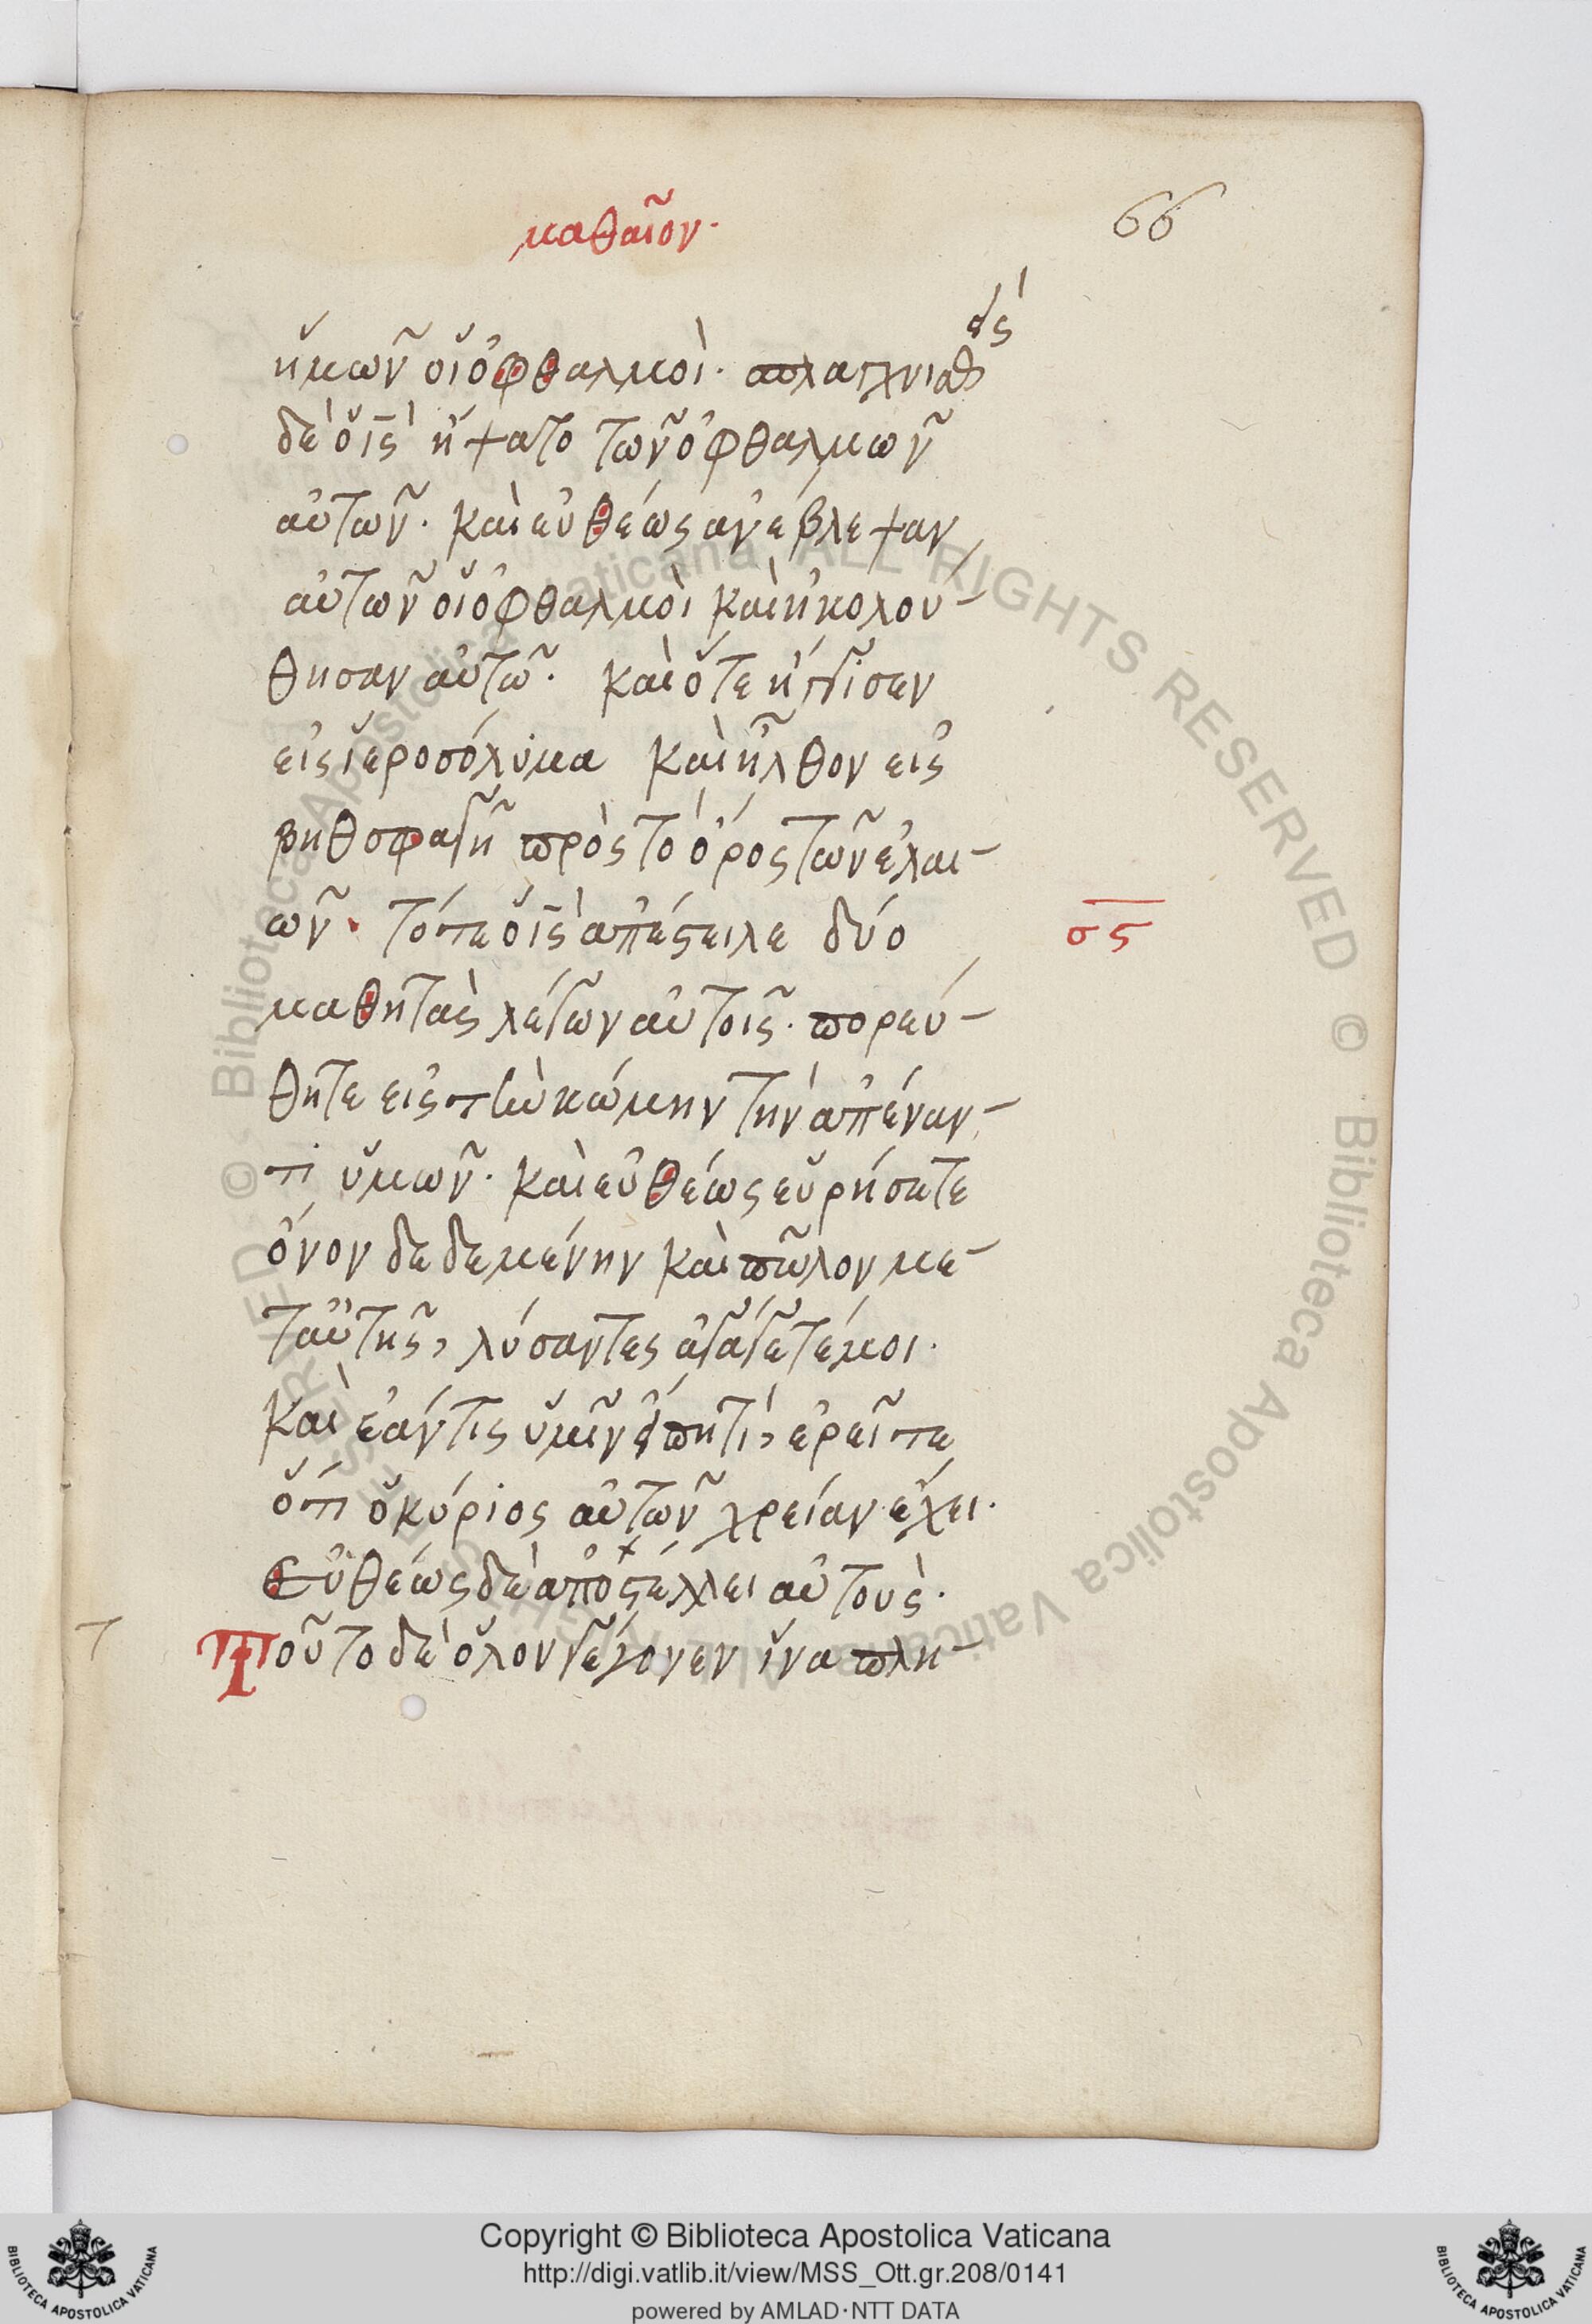 μαθαῖον·
66
ἡμῶν οἱ ὀφθαλμοὶ· σπλαγχνισθείς
δὲ ὁ ις̅ ἥψατο τῶν ὀφθαλμῶν
αὐτῶν· καὶ εὐθέως ἀνέβλεψαν
αὐτῶν οἱ ὀφθαλμὸι καὶ ἠκολού-
θησαν αὐτῶ· καὶ ὅτε ἤγγισεν
εἰς ἱεροσόλυμα καὶ ἦλθον εἰς
βηθσφαγῆ πρὸς τὸ ὄρος τῶν ἐλαι-
ῶν· τότε ὁ ις̅ ἀπέστειλε δύο
σς̅
μαθητὰς λέγων αὐτοῖς· πορεύ-
θητε εἰς τὴν κώμην τὴν ἀπέναν-
τι ὑμῶν· καὶ εὐθέως εὑρήσετε
ὄνον δεδεμένην καὶ πῶλον με-
τ αὐτῆς, λύσαντες ἀγάγετέ μοι·
καὶ ἐάν τις ὑμῖν εἴπη τὶ, ἐρεῖτε
ὅτι ὁ κύριος αὐτῶν χρείαν ἔχει·
Εὐθέως δὲ ἀποστέλλει αὐτοὺς·
τ
Τοῦτο δὲ ὅλον γέγονεν ἵνα πλη-
Copyright © Biblioteca Apostolica Vaticana
http://digi.vatlib.it/view/MSS_Ott.gr.208/0141
powered by AMLAD·NTT DATA
BIBLIOTECA APOSTOLICA VATICANA
BIBLIOTECA APOSTOLICA VATICANA
Biblioteca Apostolica Vaticana ALL RIGHTS RESERVED © Biblioteca Apostolica Vaticana ALL RIGHTS RESERVED ©